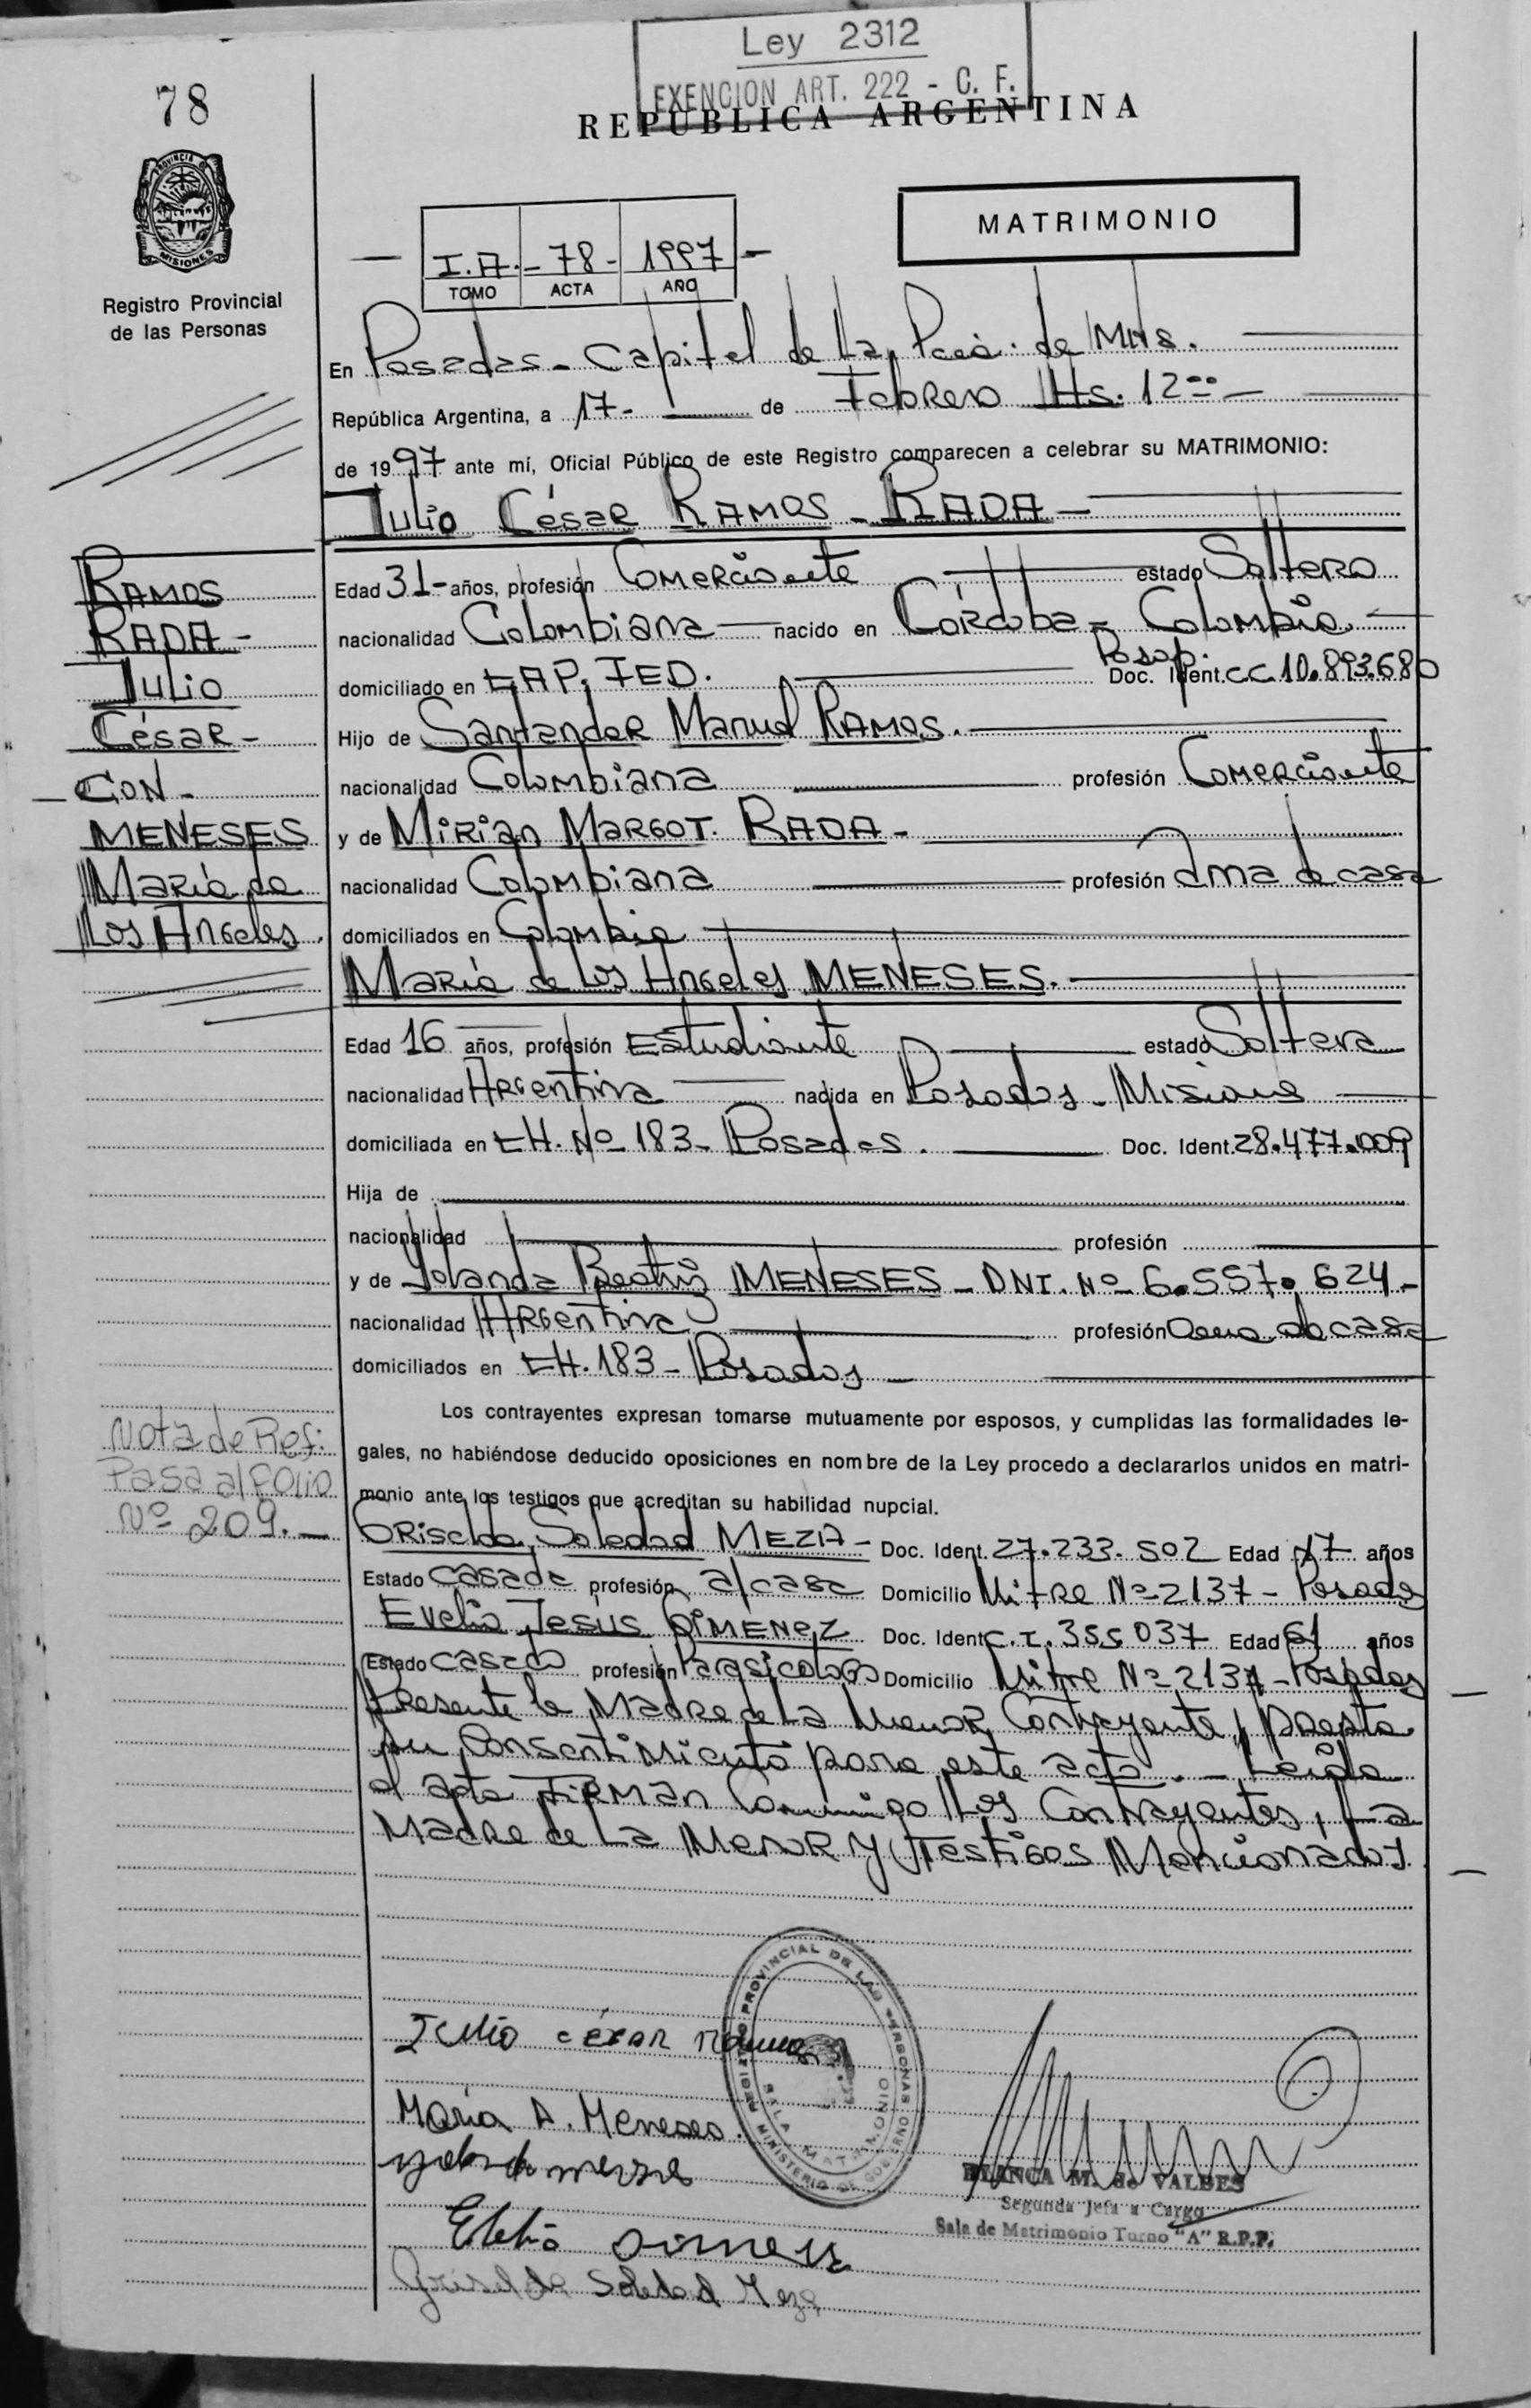 Ley 2312
EXENCION ART. 222 - C. F.
78
REPUBLICA ARGENTINA
PROVINCIA D
MISIONES
MATRIMONIO
I.A. - 78 - 1997
TOMO ACTA AÑO
Registro Provincial
de las Personas
En Posadas - Capital de La Pcia. de Mnes.
República Argentina, a 17 - de Febrero Hs. 12
de 1997 ante mí, Oficial Público de este Registro comparecen a celebrar su MATRIMONIO:
Julio César RAMOS - RADA -
RAMOS
RADA -
Julio
César -
CON -
MENESES
María de
Los Angeles.
Edad 31 - años, profesión Comerciante estado Soltero
nacionalidad Colombiana nacido en Córdoba - Colombia.
Pasap.
domiciliado en Doc. Ident. CC 10.893.680
Hijo de Santander Manuel RAMOS.
nacionalidad Colombiana profesión Comerciante
y de Mirian Margot. RADA -
nacionalidad Colombiana profesión ama de casa
domiciliados en Colombia
María de Los Angeles MENESES.
Edad 16 años, profesión Estudiante estado Soltera
nacionalidad Argentina nacida en Posadas - Misiones
domiciliada en CH. Nº 183 - Posadas. Doc. Ident. 28.477.009
Hija de
nacionalidad profesión
y de Yolanda Beatriz MENESES - DNI. Nº 6.557.624 -
nacionalidad Argentina profesión ama de casa
domiciliados en CH. 183 - Posadas -
Los contrayentes expresan tomarse mutuamente por esposos, y cumplidas las formalidades le-
gales, no habiéndose deducido oposiciones en nombre de la Ley procedo a declararlos unidos en matri-
monio ante los testigos que acreditan su habilidad nupcial.
Nota de Ref:
Pasa al Folio
Nº 209. -
Griselda Soledad MEZA - Doc. Ident. 27.233.502 Edad 17 años
Estado casada profesión a/casa Domicilio Mitre Nº 2137 - Posadas
Evelio Jesus GIMENEZ Doc. Ident. C.I. 355037 Edad 61 años
Estado casado profesión Parasicologo Domicilio Mitre Nº 2137 - Posadas
Presente la Madre de La Menor Contrayente, Presta
su Consentimiento para este acto. - Leída
el acta Firman Conmigo Los Contrayentes, La
Madre de La Menor y Testigos Mencionados.
REGISTRO PROVINCIAL DE LAS PERSONAS
SALA MATRIMONIO
MINISTERIO DE GOBIERNO
Julio césar Ramos
María A. Meneses.
BLANCA M. de VALDES
Segunda Jefa a Cargo
Sala de Matrimonio Turno "A" R.P.P.
Griselda Soledad Meza